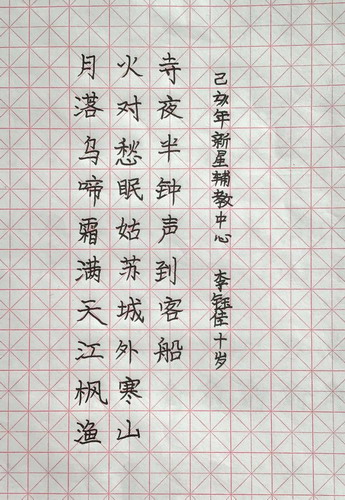 月落乌啼霜满天江枫渔
火对愁眠姑苏城外寒山
寺夜半钟声到客船
己亥年新星辅教中心 李钰佳十岁